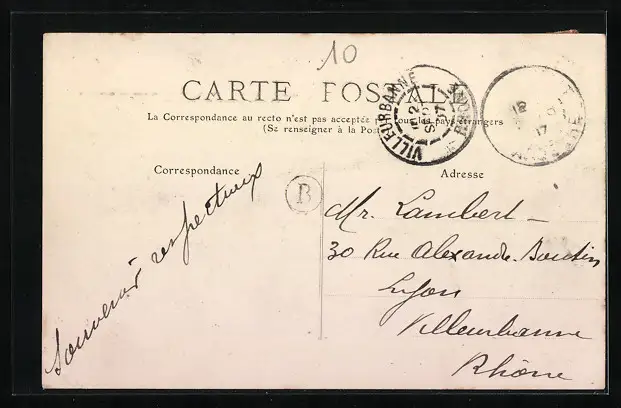 10
CARTE POSTALE
La Correspondance au recto n'est pas acceptée par tous les pays étrangers
(Se renseigner à la Poste
VILLEURBANNE RHONE
Correspondance
B
Adresse
Souvenir respectueux
Mr. Lambert
30 Rue Alexandre-Boutin
Lyon
Villeurbanne
Rhône